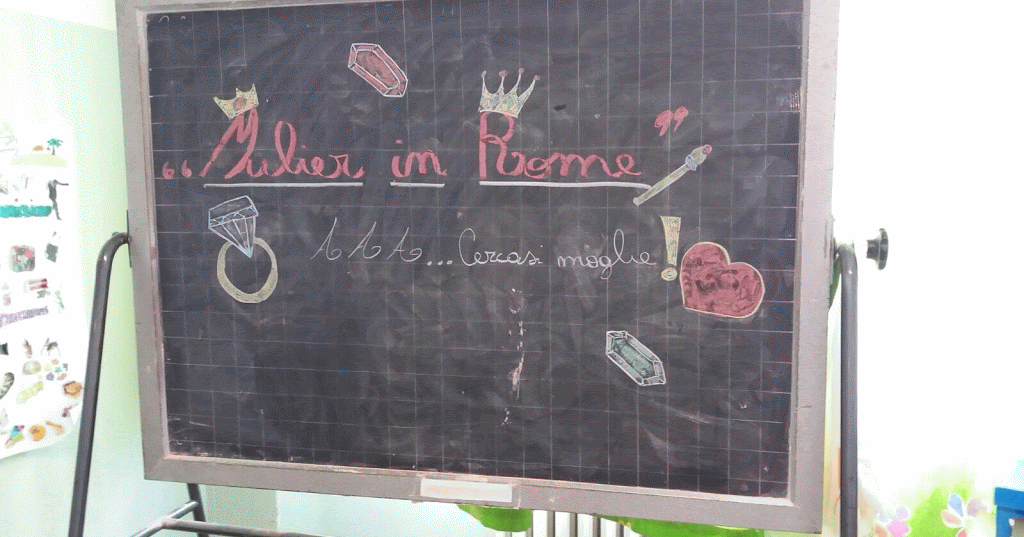 “Mulier in Rome”
AAA... Cercasi moglie!